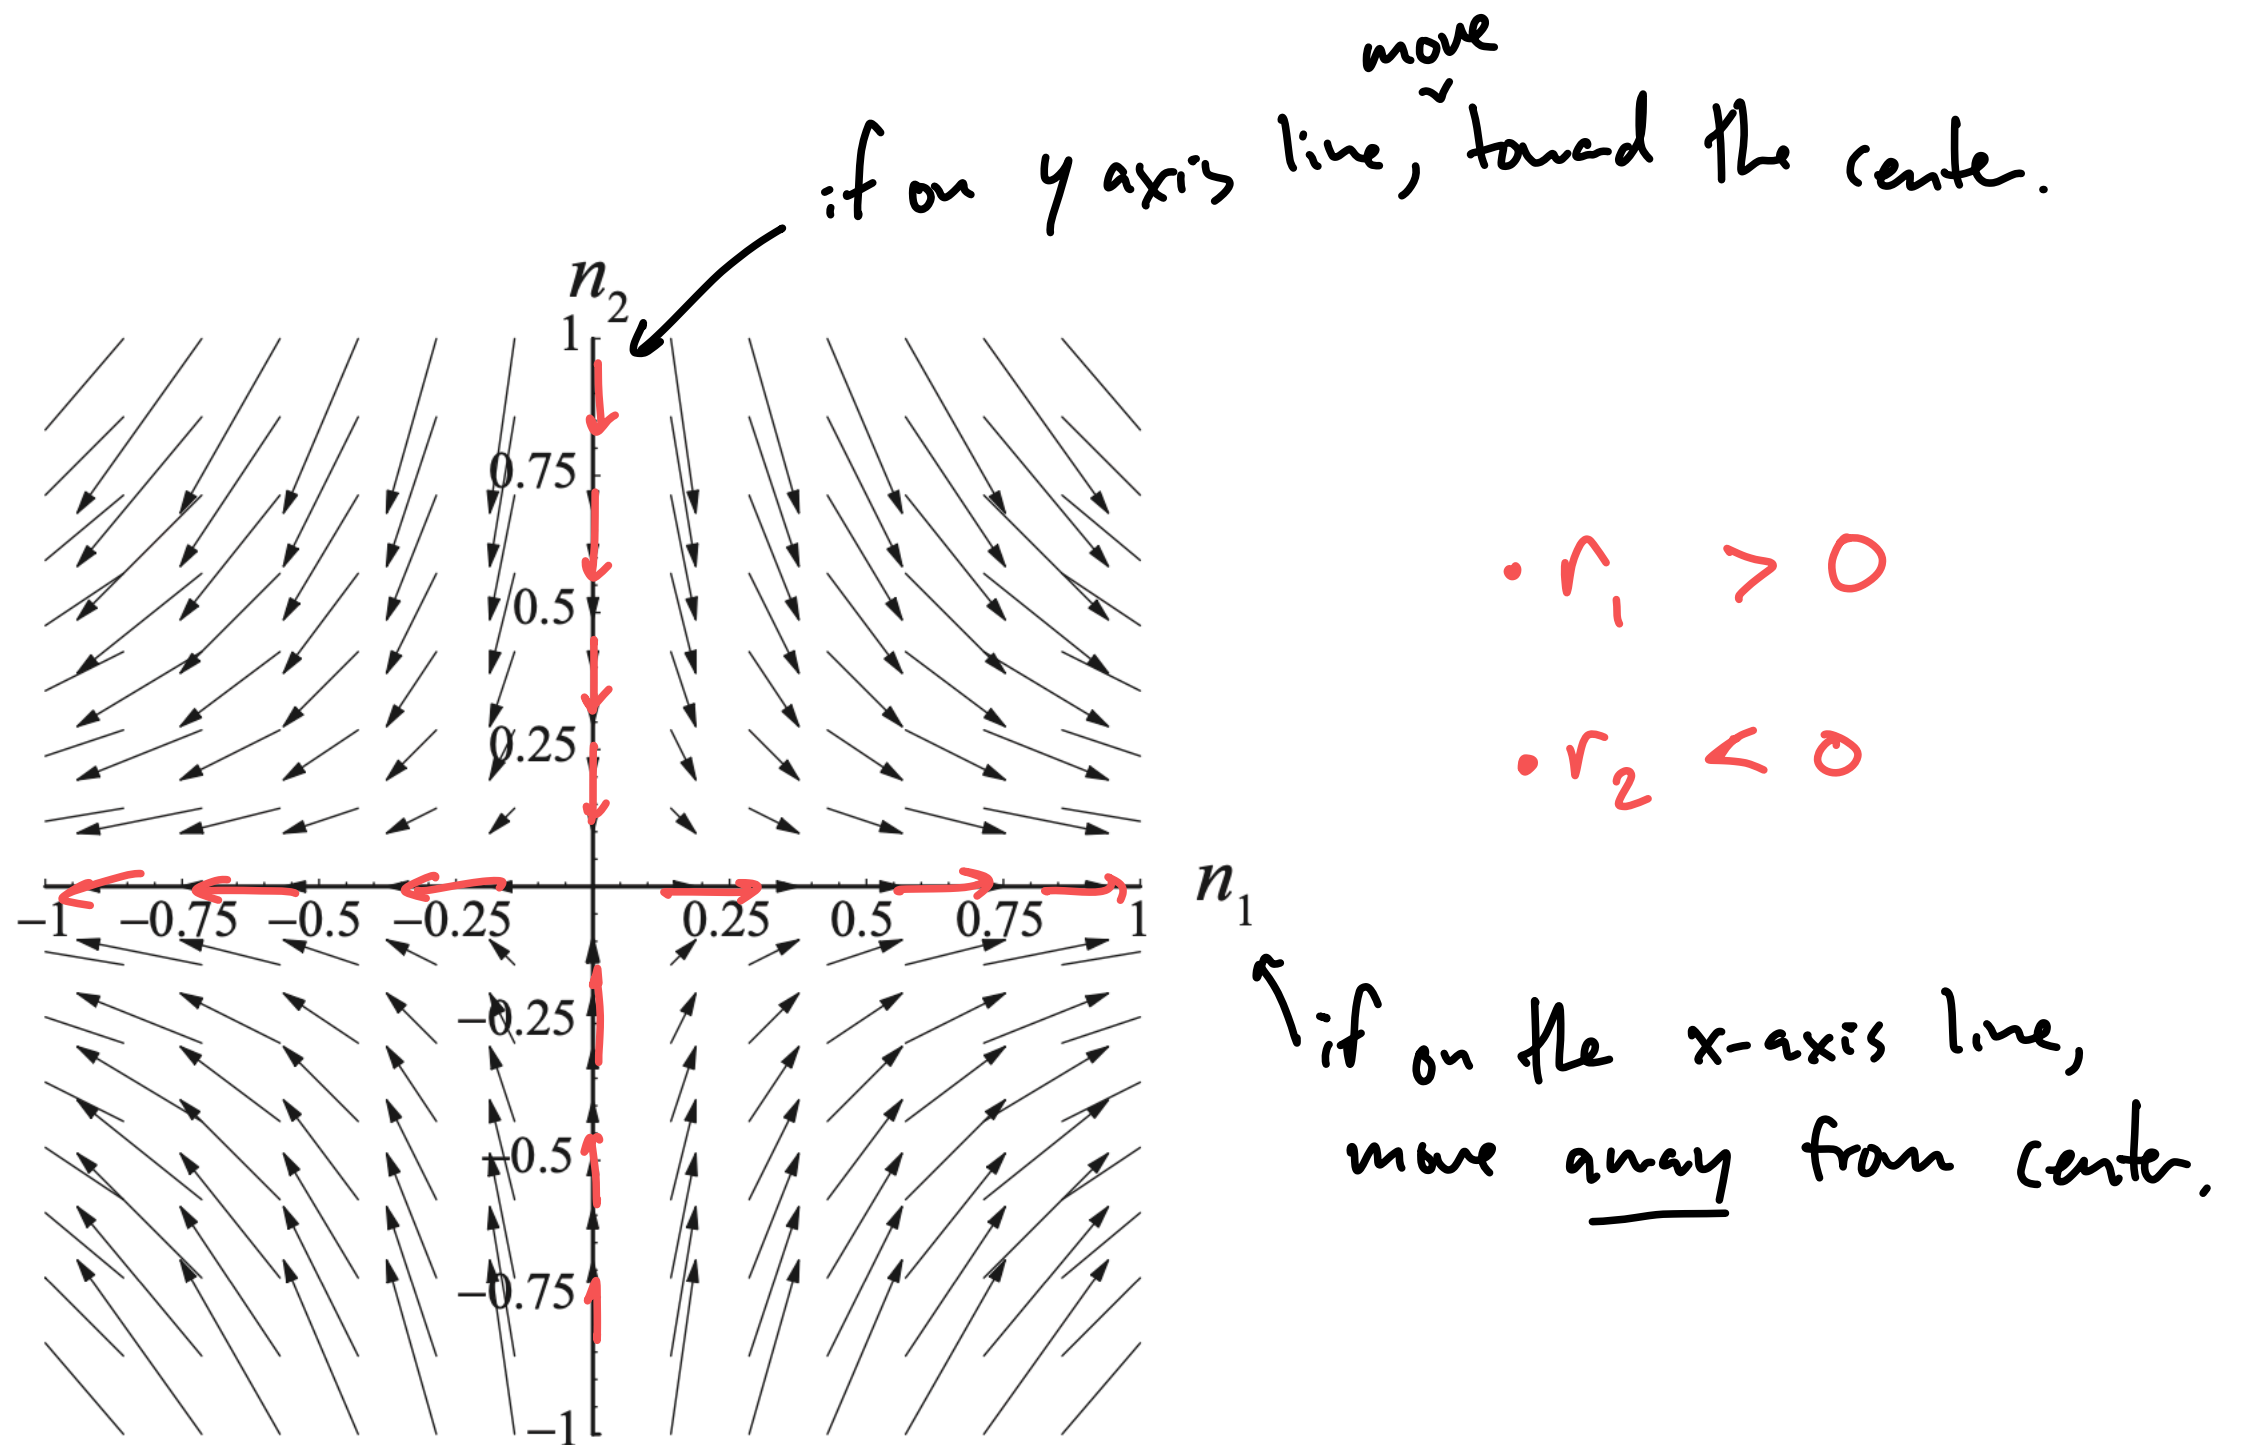 move
if on y axis line, toward the center.
n2
1
0.75
0.5
0.25
-1 -0.75 -0.5 -0.25 0.25 0.5 0.75 1 n1
-0.25
-0.5
-0.75
-1
• r1 > 0
• r2 < 0
if on the x-axis line,
move away from center.